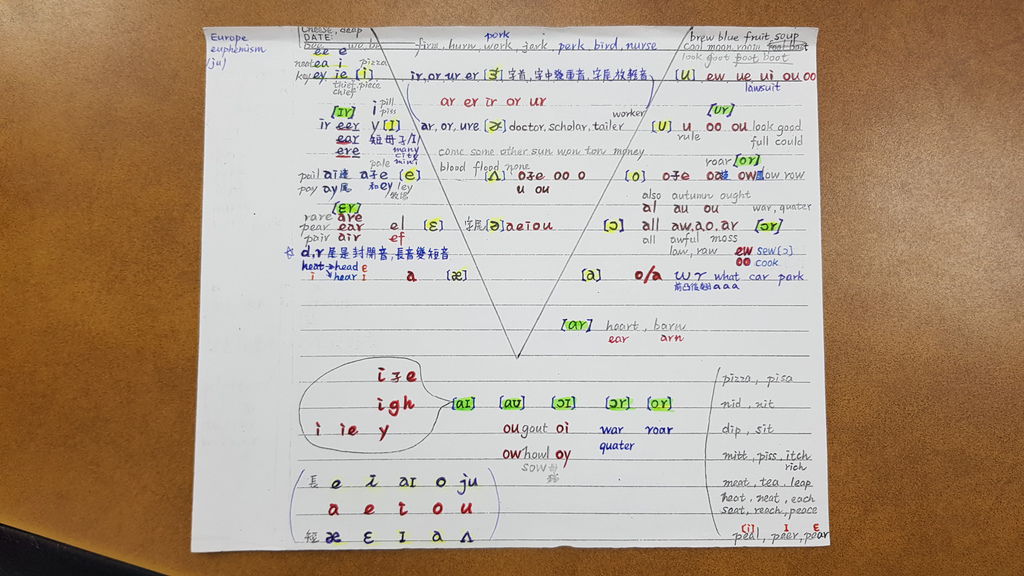 Europe
euphemism
(ju)
cheese, deep
DATE:
pork
firm, burn, work, jerk, perk, bird, nurse
brew blue fruit soup
cool moon room
look goot foot boot
ee e
ea i pizza
key ey ie [i]
thief, piece
chief
ir, or ur er [ɝ] 字首,字中幾重音,字尾放輕音
[u] ew ue ui ou oo
lawsuit
ar er ir or ur
[Ir] i pill
piss
ir eer y [I]
ear 短母子/I/
ere many
city
mini
worker
ar, or, ure [ɚ] doctor, scholar, tailer
[Ur]
[U] u oo ou look good
rule full could
come some other sun won ton money
blood flood none
pale
pail ai連 a子e [e]
pay ay尾 和ey ley
[Λ] o子e oo o
u ou
roar [or]
[o] o子e oa ow low row
also autumn ought
[ɛr]
rare are
pear ear el [ɛ]
pair air ef
字尾[ə] a e i o u
al au ou war, quater
[ɔ] all aw.ao.ar [ɔr]
all awful moss
law, raw ew sew[ɔ]
oo cook
☆ d,r尾是封閉音,長音變短音
heat→head e
i hear I
a [æ]
[a] o/a w r what car park
a a a
[ar] heart, barn
ear arn
i子e
igh
i ie y
[aI] [aʊ] [ɔI] [ɔr] [or]
ou gout oi war roar
quater
ow howl oy
sow
pizza, pisa
nid, nit
dip, sit
mitt, piss, itch
rich
meat, tea, leap
heat, neat, each
seat, reach, peace
[i] I ɛ
peal, peer, pear
長 e i aI o ju
a e i o u
短 æ ɛ I a Λ